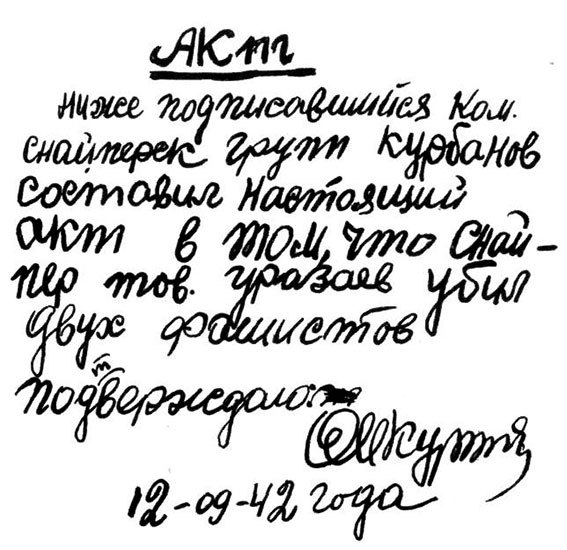 Акт
ниже подписавшийся ком.
снайперск групп Курбанов
составил настоящий
акт в том, что снай-
пер тов. Уразаев убил
двух фашистов
подтверждаю:
12-09-42 года